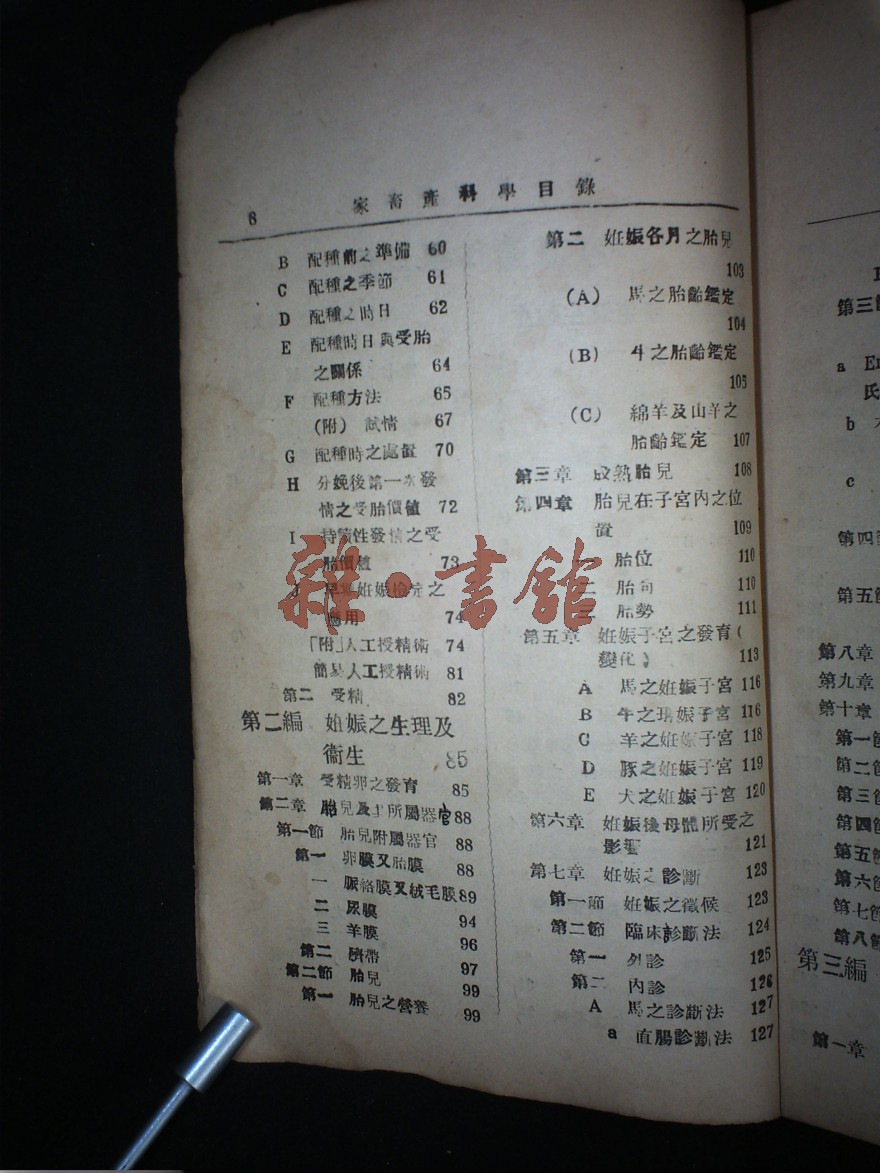 8 家畜產科學目錄
B 配種前之準備 60
C 配種之季節 61
D 配種之時日 62
E 配種時日與受胎
之關係 64
F 配種方法 65
(附) 試情 67
G 配種時之處置 70
H 分娩後第一次發
情之受胎價値 72
I 持續性發情之受
胎價値 73
J 早期姙娠檢定之
應用 74
「附」人工授精術 74
簡易人工授精術 81
第二 受精 82
第二編 姙娠之生理及
衞生 85
第一章 受精卵之發育 85
第二章 胎兒及其所屬器官 88
第一節 胎兒附屬器官 88
第一 卵膜又胎膜 88
一 脈絡膜又絨毛膜 89
二 尿膜 94
三 羊膜 96
第二 臍帶 97
第二節 胎兒 99
第一 胎兒之營養 99
第二 姙娠各月之胎兒
103
(A) 馬之胎齡鑑定
104
(B) 牛之胎齡鑑定
105
(C) 綿羊及山羊之
胎齡鑑定 107
第三章 成熟胎兒 108
第四章 胎兒在子宮內之位
置 109
一 胎位 110
二 胎向 110
三 胎勢 111
第五章 姙娠子宮之發育(
變化) 113
A 馬之姙娠子宮 116
B 牛之姙娠子宮 116
C 羊之姙娠子宮 118
D 豚之姙娠子宮 119
E 犬之姙娠子宮 120
第六章 姙娠後母體所受之
影響 121
第七章 姙娠之診斷 123
第一節 姙娠之徵候 123
第二節 臨床診斷法 124
第一 外診 125
第二 內診 126
A 馬之診斷法 127
a 直腸診斷法 127
第三節
a
氏
b
c
第四節
第五節
第八章
第九章
第十章
第一節
第二節
第三節
第四節
第五節
第六節
第七節
第八節
第三編
第一章
雜·書館